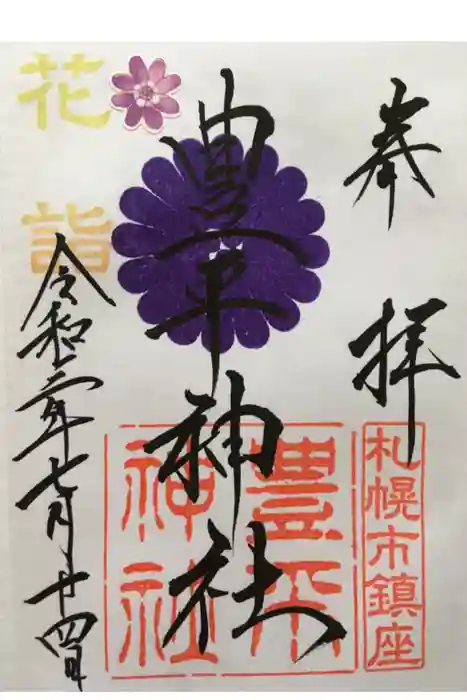 奉拝
札幌市鎮座
豊平神社
豊平神社
花詣
令和二年七月廿四日